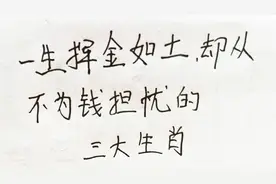 一生挥金如土,却从
不为钱担忧的
三大生肖